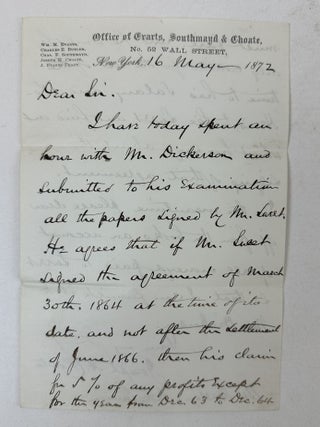 Office of Evarts, Southmayd & Choate,
Wm. M. Evarts,
Charles F. Southmayd,
Joseph H. Choate,
No. 52 WALL STREET,
New York, 16 May 1872
Dear Sir.
I have to day spent an
hour with Mr. Dickerson and
submitted to his Examination
all the papers signed by Mr. Sweet.
He agrees that if Mr. Sweet
signed the agreement of March
30th. 1864 at the time of its
date, and not after the settlement
of June 1866. then his claim
for 5 % of any profits Except
for the year from Dec. 63 to Dec. 64